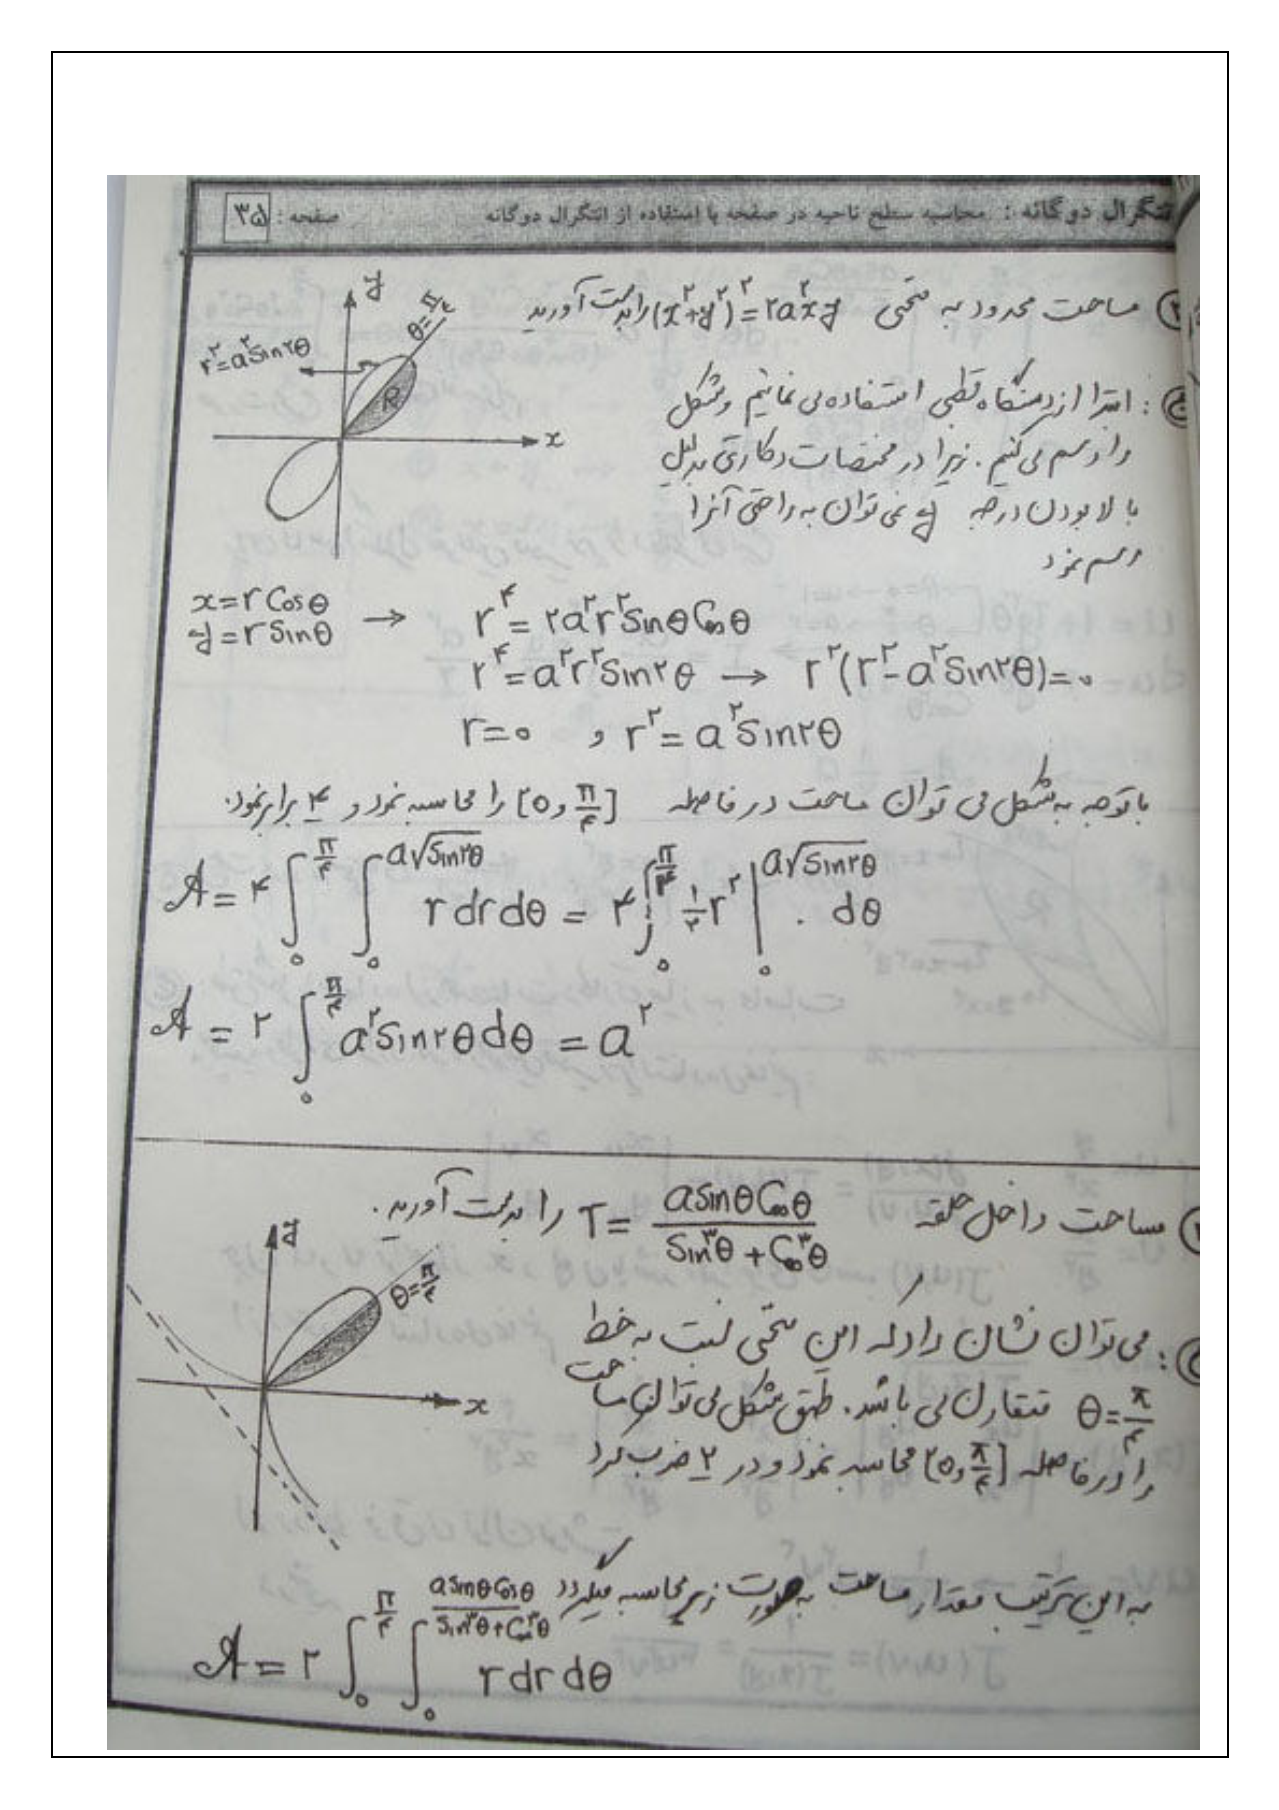 انتگرال دوگانه : محاسبه سطح ناحیه در صفحه با استفاده از انتگرال دوگانه صفحه : ۳۵
مساحت محدود به منحنی (x²+y²)²=۲a²xy را بدست آورید
y
θ=π/۴
r²=a²Sin۲θ
R
x
ج: ابتدا از دستگاه قطبی استفاده می نمائیم و شکل
را رسم می کنیم. زیرا در مختصات دکارتی بدلیل
بالا بودن درجه y نمی توان به راحتی آنرا
رسم نمود
x=rCosθ
y=rSinθ → r⁴=۲a²r²SinθCosθ
r⁴=a²r²Sin۲θ → r²(r²-a²Sin۲θ)=۰
r=۰ , r²=a²Sin۲θ
با توجه به شکل می توان مساحت در فاصله [۰,π/۴] را محاسبه نمود و ۴ برابر نمود.
A=۴∫₀^(π/۴) ∫₀^(a√Sin۲θ) r dr dθ = ۴∫₀^(π/۴) ۱/۲ r² |₀^(a√Sin۲θ) . dθ
A = ۲ ∫₀^(π/۴) a²Sin۲θ dθ = a²
مساحت داخل حلقه r= aSinθCosθ / Sin³θ+Cos³θ را بدست آورید.
y
θ=π/۴
x
ج: می توان نشان داد که این منحنی نسبت به خط
θ=π/۴ متقارن می باشد. طبق شکل می توان مساحت
را در فاصله [۰,π/۴] محاسبه نمود و در ۲ ضرب کرد
به این ترتیب مقدار مساحت بصورت زیر محاسبه میگردد
A=۲∫₀^(π/۴) ∫₀^(aSinθCosθ / Sin³θ+Cos³θ) r dr dθ